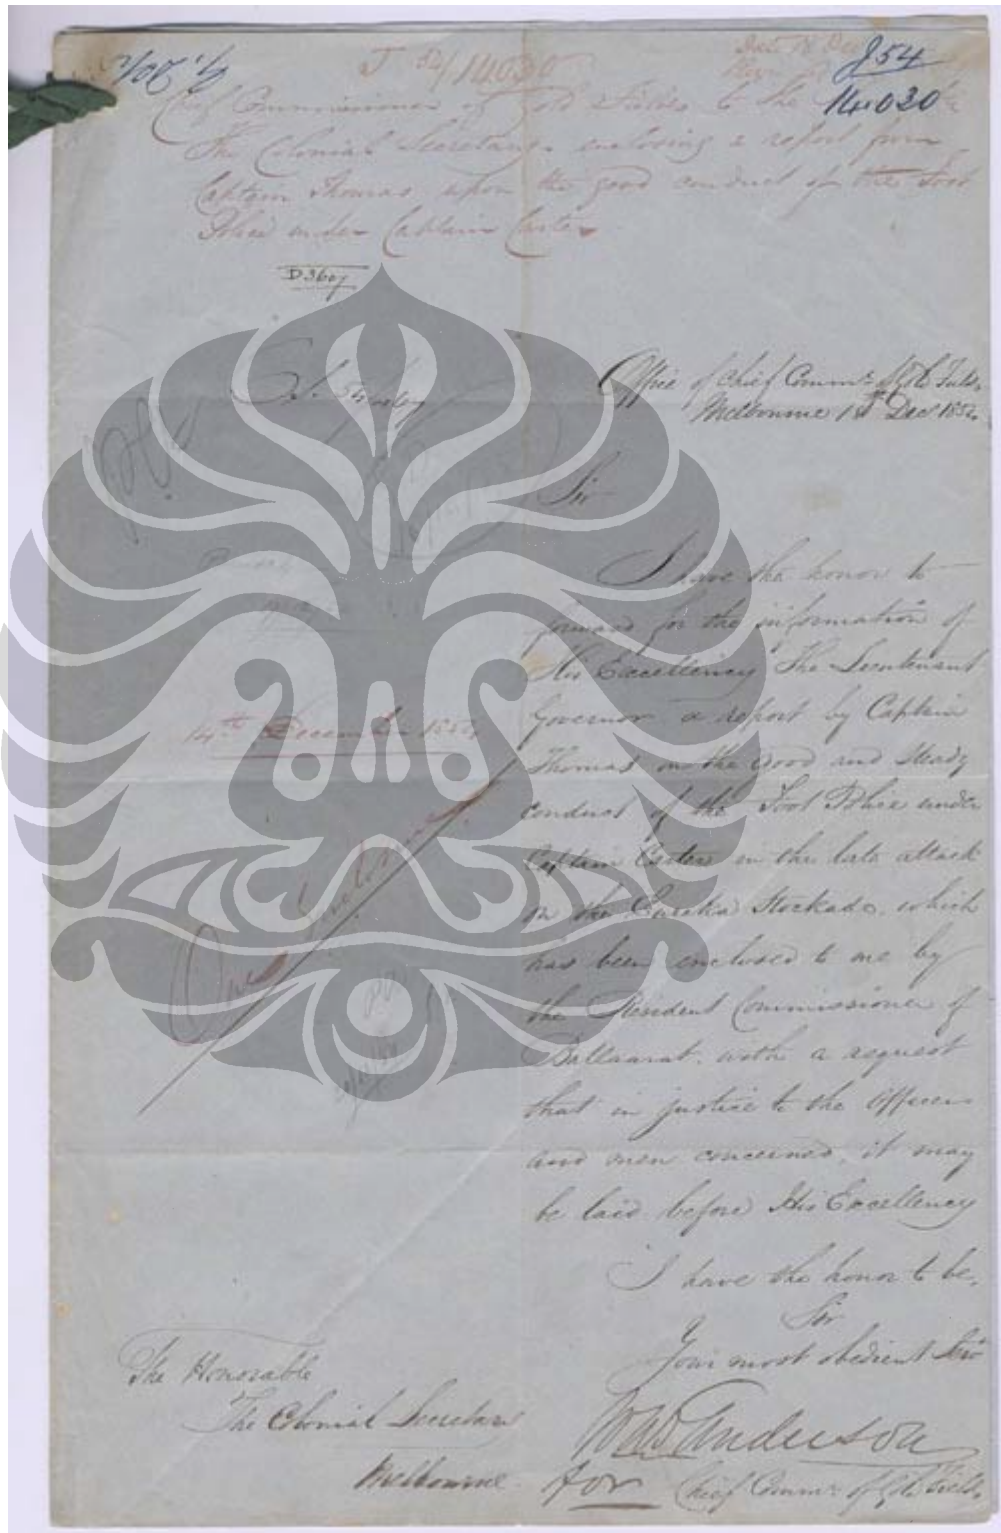 J 54/14030
J54
14030
Chief Commissioner of Gold Fields to the
The Colonial Secretary enclosing a report from
Captain Thomas upon the good conduct of the Foot
Police under Captain Carter
D3607
Office of Chief Commr. Gold Fields
Melbourne Dec 1854
Sir
I have the honor to
forward for the information of
His Excellency The Lieutenant
Governor a report by Captain
Thomas on the Good and steady
conduct of the Foot Police under
Captain Carter in the late attack
on the Eureka Stockade, which
has been enclosed to me by
the Resident Commissioner of
Ballaarat, with a request
that in justice to the Officers
and men concerned, it may
be laid before His Excellency
I have the honor to be,
Sir
Your most obedient Servt
Anderson
for Chief Commr. of Gold Fields
14th December 1854
The Honorable
The Colonial Secretary
Melbourne